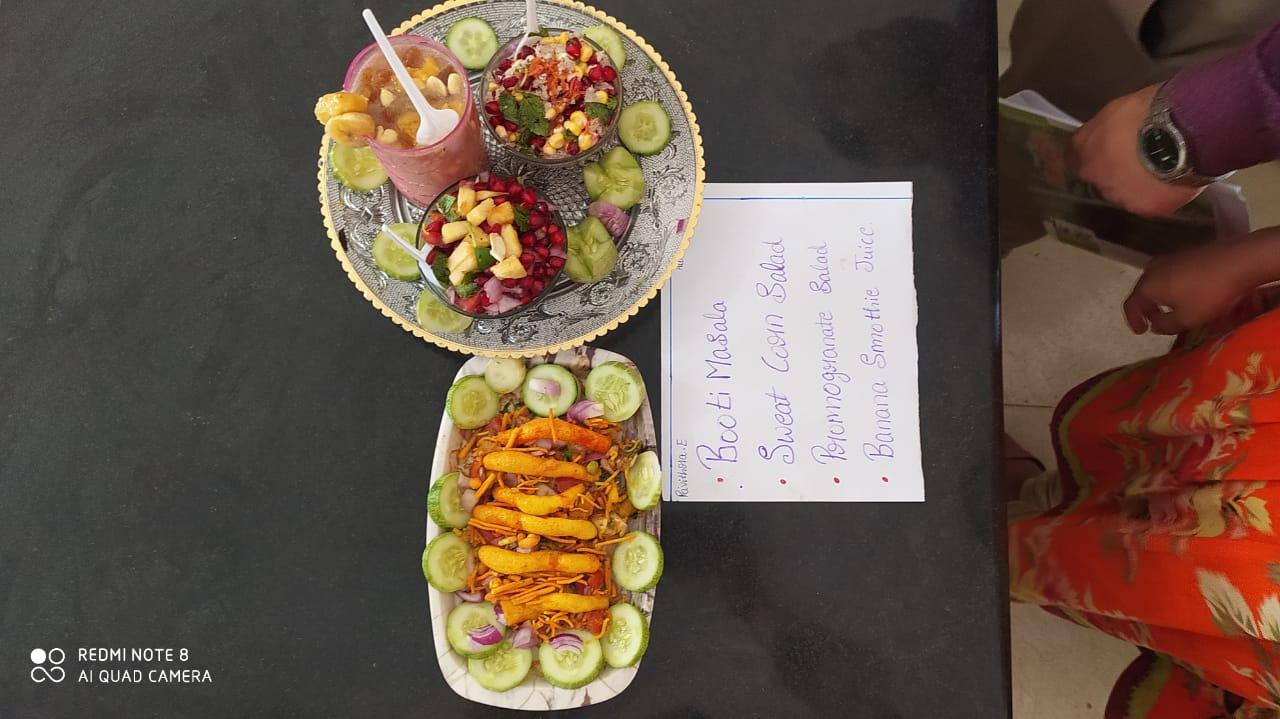 • Booti Masala
• Sweat Corn Salad
• Pomnogranate Salad
• Banana Smothie Juice.
REDMI NOTE 8
AI QUAD CAMERA